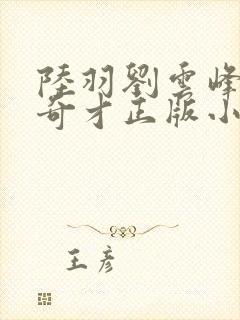 陸羽劉雲峰
奇才正版小
王彥